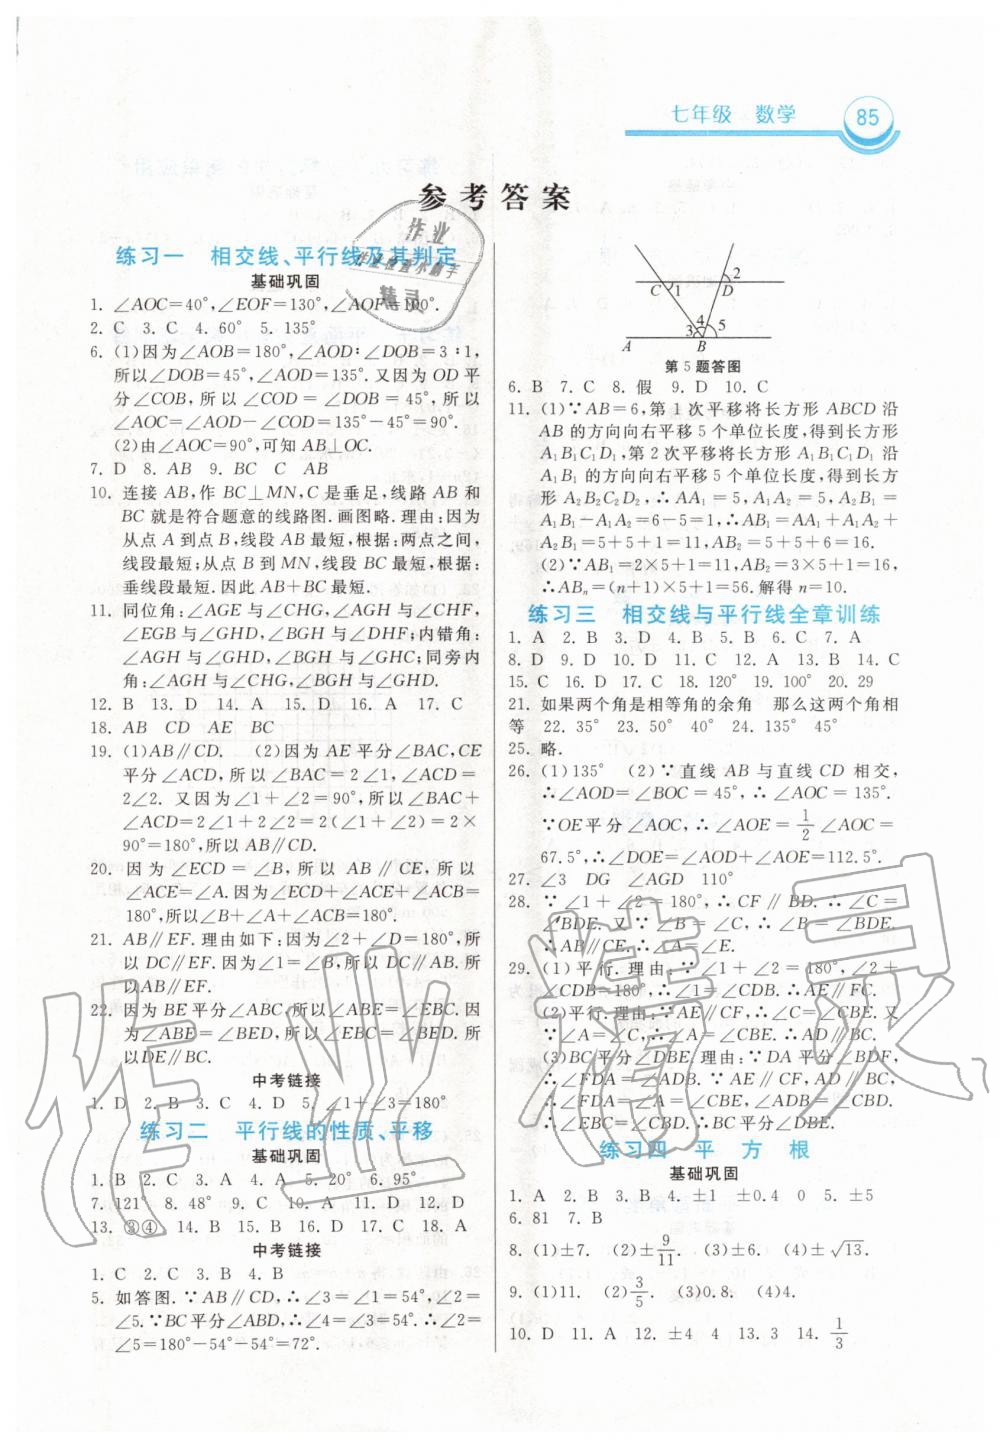 七年级 数学 85
参考答案
练习一 相交线、平行线及其判定
基础巩固
1. ∠AOC=40°,∠EOF=130°,∠AOF=100°.
2. C 3. C 4. 60° 5. 135°
6. (1)因为∠AOB=180°,∠AOD∶∠DOB=3∶1,
所以∠DOB=45°,∠AOD=135°. 又因为 OD 平
分∠COB, 所 以 ∠COD = ∠DOB = 45°, 所 以
∠AOC=∠AOD-∠COD=135°-45°=90°.
(2)由∠AOC=90°,可知 AB⊥OC.
7. D 8. AB 9. BC C AB
10. 连接 AB,作 BC⊥MN,C 是垂足,线路 AB 和
BC 就是符合题意的线路图. 画图略. 理由:因为
从点 A 到点 B,线段 AB 最短,根据:两点之间,
线段最短;从点 B 到 MN,线段 BC 最短,根据:
垂线段最短. 因此 AB+BC 最短.
11. 同位角:∠AGE 与∠CHG,∠AGH 与∠CHF,
∠EGB 与∠GHD,∠BGH 与∠DHF;内错角:
∠AGH 与∠GHD,∠BGH 与∠GHC;同旁内
角:∠AGH 与∠CHG,∠BGH 与∠GHD.
12. B 13. D 14. A 15. D 16. A 17. C
18. AB CD AE BC
19. (1)AB∥CD. (2)因为 AE 平分∠BAC,CE
平分∠ACD,所以∠BAC=2∠1,∠ACD=
2∠2. 又因为∠1+∠2=90°,所以∠BAC+
∠ACD=2∠1+2∠2=2(∠1+∠2)=2×
90°=180°,所以 AB∥CD.
20. 因为∠ECD=∠B,所以 AB∥CE,所以
∠ACE=∠A. 因为∠ECD+∠ACE+∠ACB=
180°,所以∠A+∠B+∠ACB=180°.
21. AB∥EF. 理由如下:因为∠2+∠D=180°,所
以 DC∥EF. 因为∠1=∠B,所以 DC∥AB. 所
以AB∥EF.
22. 因为 BE 平分∠ABC,所以∠ABE=∠EBC. 因
为∠ABE=∠BED,所以∠EBC=∠BED. 所
以DE∥BC.
中考链接
1. D 2. B 3. C 4. D 5. ∠1+∠3=180°
练习二 平行线的性质、平移
基础巩固
1. B 2. C 3. A 4. A 5. 20° 6. 95°
7. 121° 8. 48° 9. C 10. A 11. D 12. D
13. ③④ 14. B 15. B 16. D 17. C 18. A
中考链接
1. C 2. C 3. B 4. B
5. 如答图. ∵AB∥CD,∴∠3=∠1=54°,∠2=
∠5. ∵BC平分∠ABD,∴∠4=∠3=54°. ∴∠2=
∠5=180°-54°-54°=72°.
C 1 D 2
3 4 5
A B
第 5 题答图
6. B 7. C 8. 假 9. D 10. C
11. (1)∵AB=6,第 1 次平移将长方形 ABCD 沿
AB 的方向向右平移 5 个单位长度,得到长方形
A₁B₁C₁D₁,第 2 次平移将长方形 A₁B₁C₁D₁ 沿
A₁B₁的方向向右平移 5 个单位长度,得到长方
形 A₂B₂C₂D₂,∴AA₁=5,A₁A₂=5,A₂B₁=
A₁B₁-A₁A₂=6-5=1,∴AB₁=AA₁+A₁A₂+
A₂B₁=5+5+1=11,∴AB₂=5+5+6=16.
(2)∵AB₁=2×5+1=11,AB₂=3×5+1=16,
∴ABₙ=(n+1)×5+1=56. 解得 n=10.
练习三 相交线与平行线全章训练
1. A 2. B 3. D 4. B 5. B 6. C 7. A
8. D 9. D 10. D 11. C 12. A 13. B 14. C
15. C 16. D 17. C 18. 120° 19. 100° 20. 29
21. 如果两个角是相等角的余角 那么这两个角相
等 22. 35° 23. 50° 40° 24. 135° 45°
25. 略.
26. (1)135° (2)∵直线 AB 与直线 CD 相交,
∴∠AOD=∠BOC=45°,∴∠AOC=135°.
∵OE平分∠AOC,∴∠AOE=1/2∠AOC=
67.5°,∴∠DOE=∠AOD+∠AOE=112.5°.
27. ∠3 DG ∠AGD 110°
28. ∵∠1+∠2=180°,∴CF∥BD. ∴∠C=
∠BDE. 又∵∠B=∠C,∴∠B=∠BDE.
∴AB∥CE. ∴∠A=∠E.
29. (1)平行. 理由:∵∠1+∠2=180°,∠2+
∠CDB=180°,∴∠1=∠CDB. ∴AE∥FC.
(2)平行. 理由:∵AE∥CF,∴∠C=∠CBE. 又
∵∠A=∠C,∴∠A=∠CBE. ∴AD∥BC.
(3)BC平分∠DBE. 理由:∵DA平分∠BDF,
∴∠FDA=∠ADB. ∵AE∥CF,AD∥BC,
∴∠FDA=∠A=∠CBE,∠ADB=∠CBD.
∴∠EBC=∠CBD. ∴BC平分∠DBE.
练习四 平 方 根
基础巩固
1. A 2. B 3. B 4. ±1 ±0.4 0 5. ±5
6. 81 7. B
8. (1)±7. (2)±9/11. (3)±6. (4)±√13.
9. (1)11. (2)3/5. (3)0.8. (4)4.
10. D 11. A 12. ±4 4 13. 3 14. 1/3
作业
作业检查小助手
精灵
作业精灵